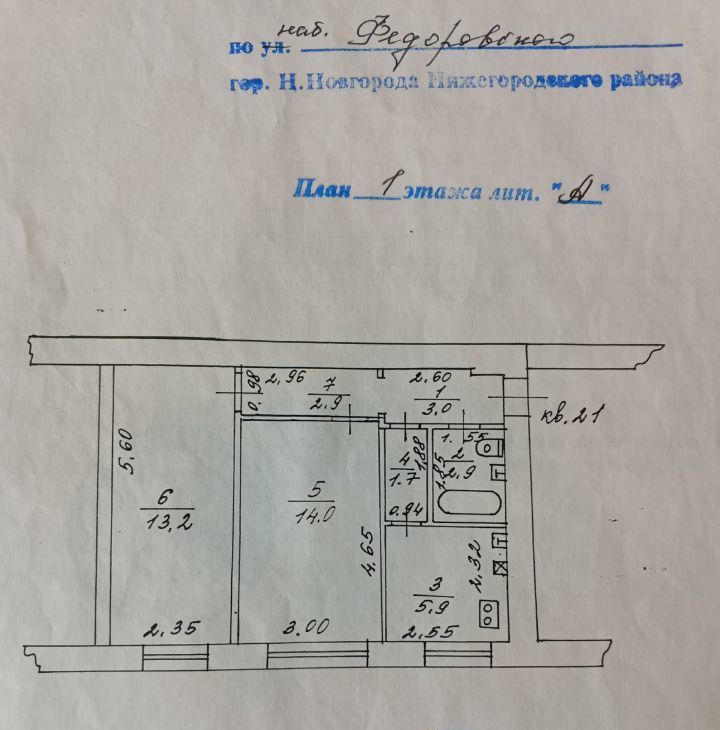 наб. Федоровского
по ул.
гор. Н.Новгорода Нижегородского района
План 1 этажа лит. "А"
0.98
2,96
7
2.9
2.60
1
3.0
кв.21
5.60
6
13,2
2.35
5
14.0
4.65
3.00
4
1.7
1,88
0.94
1.55
2
2.9
1.85
3
5.9
2,32
2.55